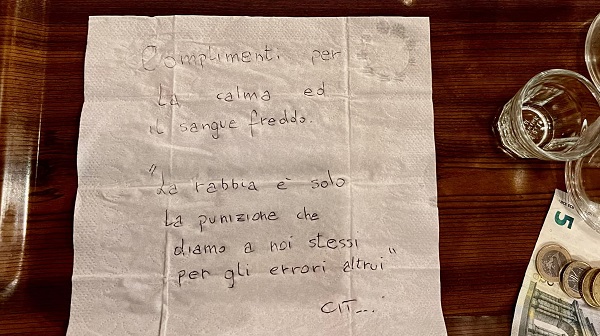 Complimenti per
La calma ed
il sangue freddo.
"La rabbia è solo
la punizione che
diamo a noi stessi
per gli errori altrui"
CIT....
5